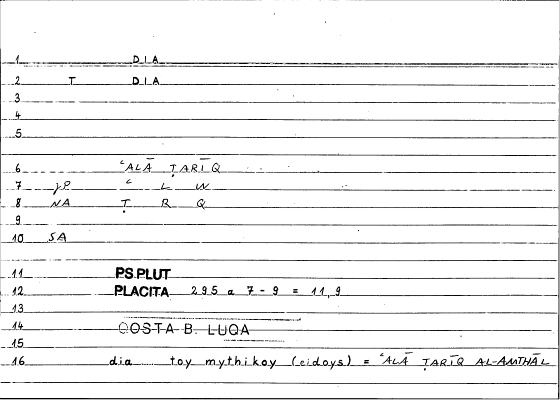 1 DIA
2 T DIA
3
4
5
6 ʿALĀ ṬARĪQ
7 JP ʿ L W
8 NA Ṭ R Q
9
10 SA
11 PS.PLUT
12 PLACITA 295 a 7-9 = 11,9
13
14 QOSTA B. LUQA
15
16 dia toy mythikoy (eidoys) = ʿALĀ ṬARĪQ AL-AMTHĀL